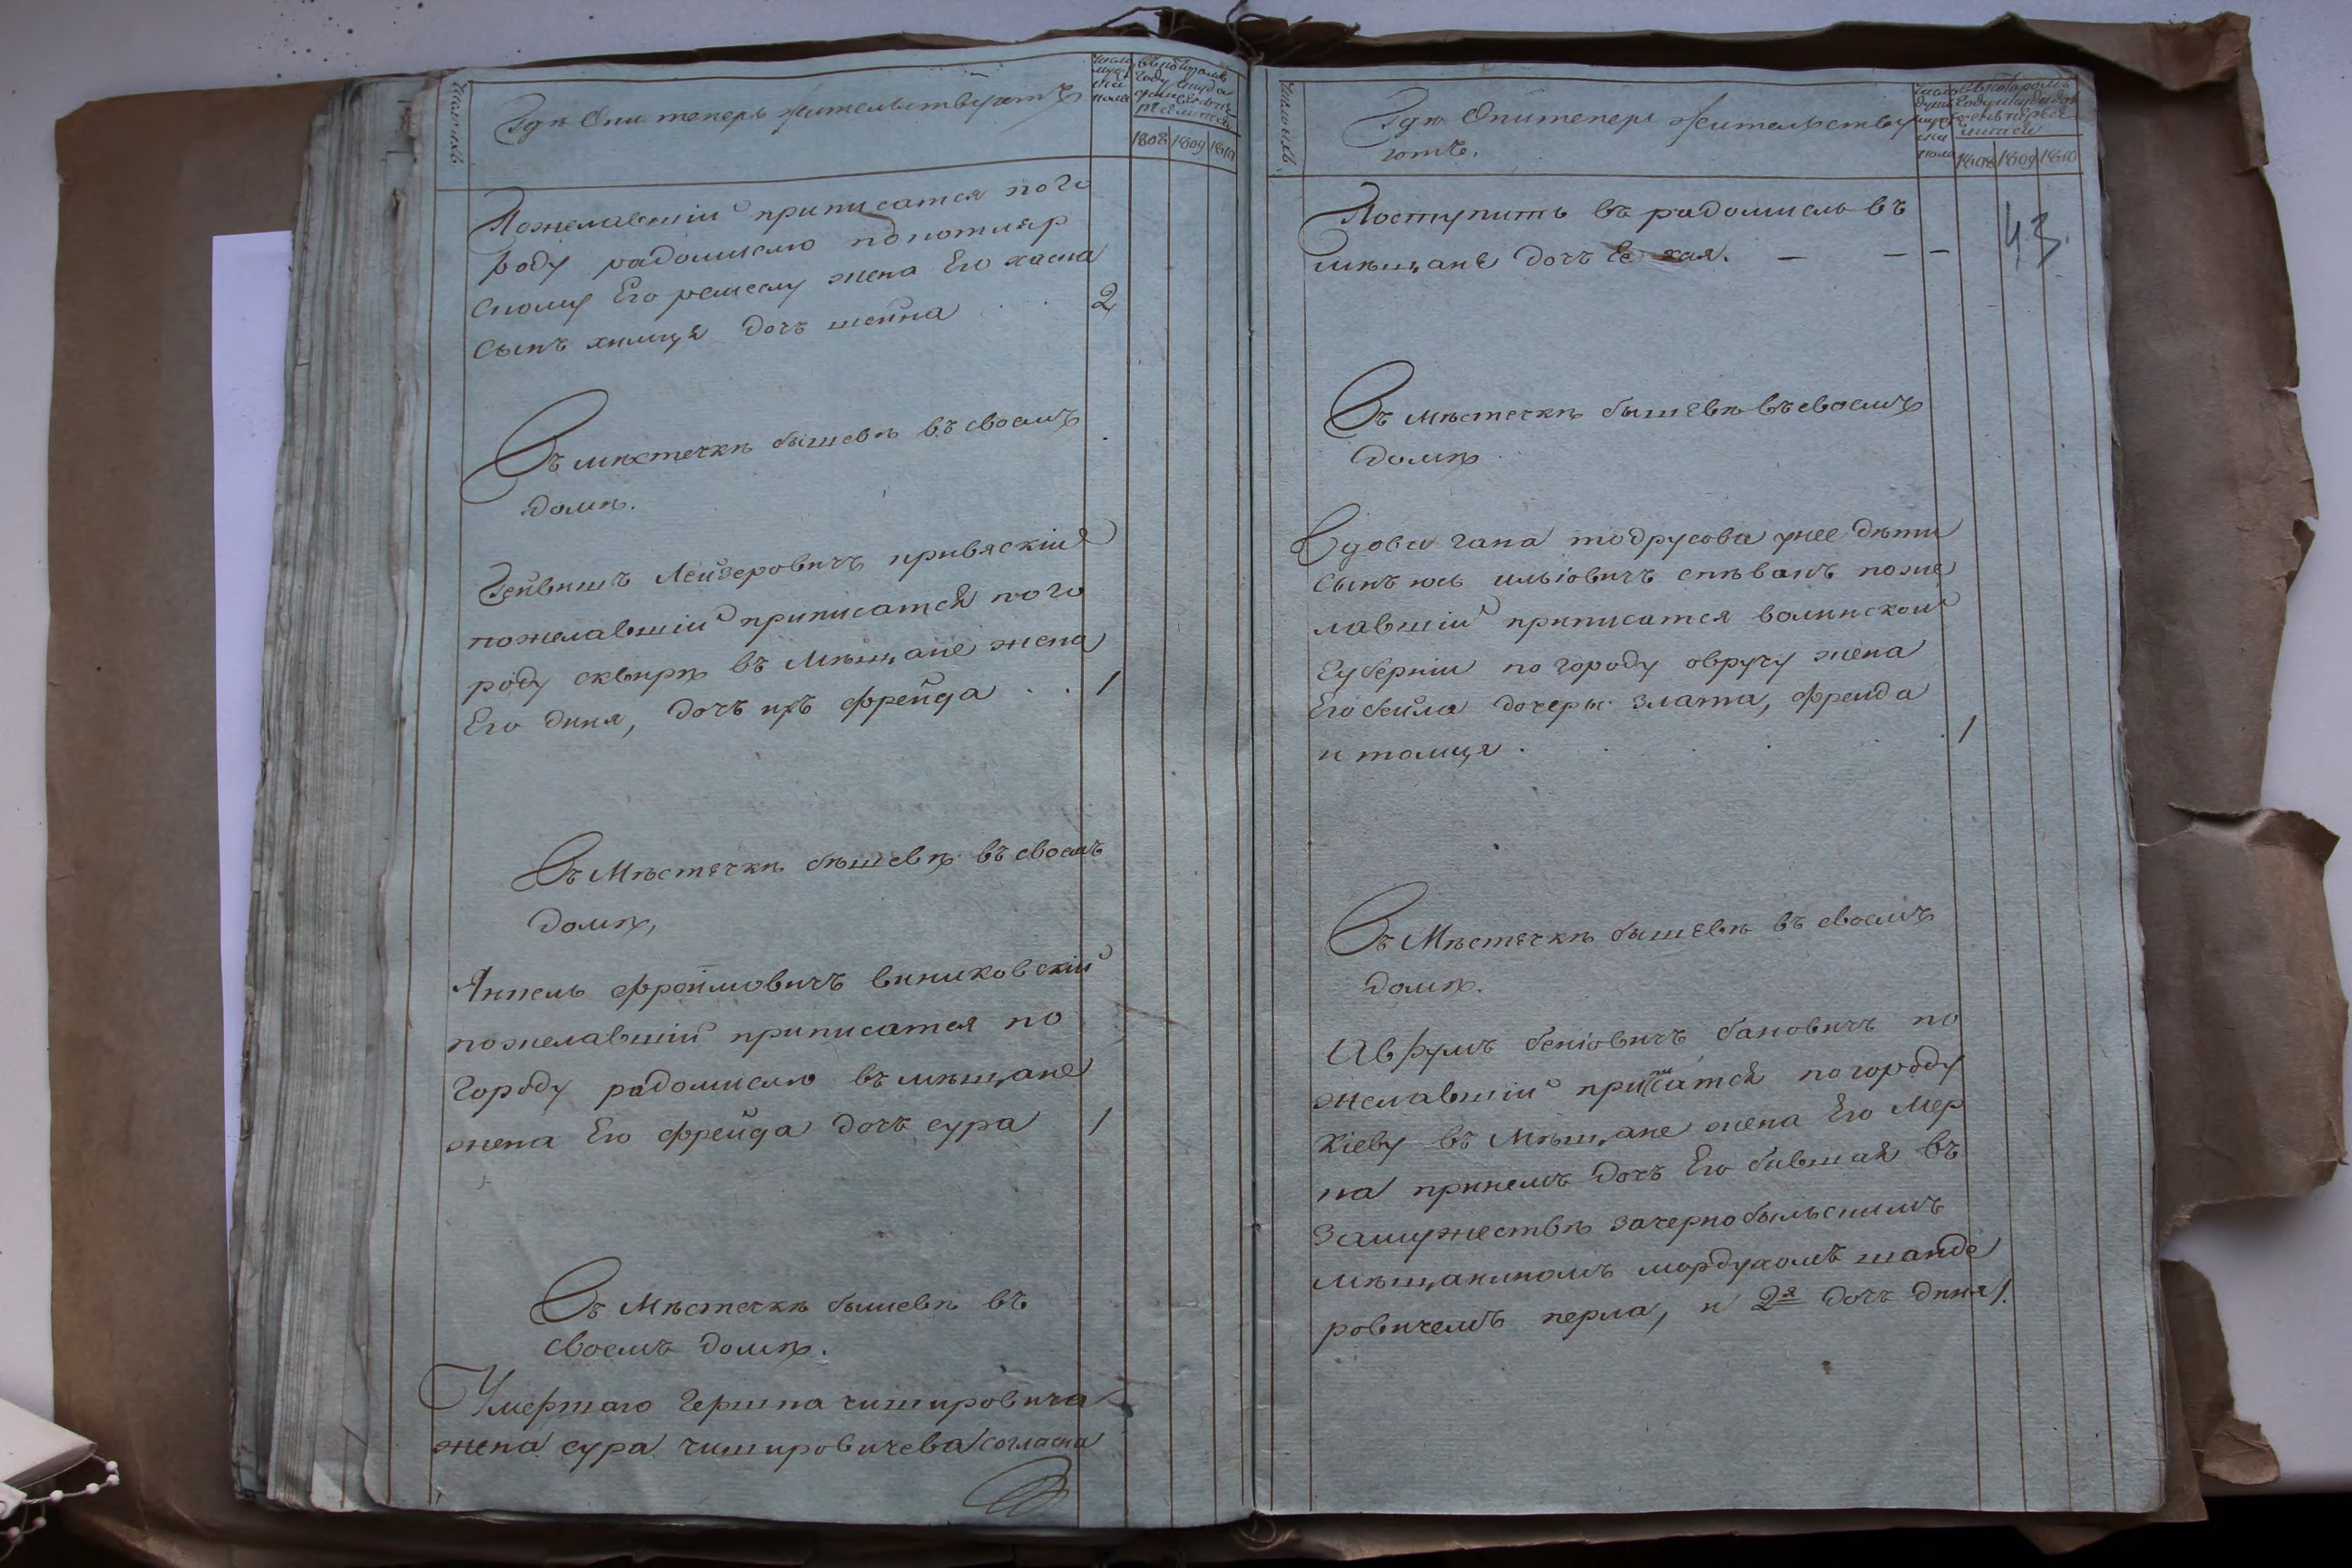 Число ихъ
Гдѣ Они теперь жительствуютъ
Число муж: ска пола
въ которомъ году и куда
1808 1809 1810
Пожелавшій приписатся по го
роду радомислю по
Его ремеслу жена Его хасна
сынъ дочь шейна . . . 2
Въ мѣстечкѣ бышевѣ въ своемъ
домѣ.
Лейзеровичъ
пожелавшій приписатся по го
роду сквирѣ въ Мѣщане жена
Его диня, дочь ихъ фрейда . . 1
Въ Мѣстечкѣ бышевѣ въ своемъ
домѣ,
Янкель фроимовичъ виниковскій
пожелавшій приписатся по
Городу радомислю въ мѣщане
жена Его фрейда дочь сура 1
Въ Мѣстечкѣ бышевѣ въ
своемъ домѣ.
Умершаго Гершка чишировича
жена сура чишировичева согласна
Число ихъ
Гдѣ Они тепери Жительству
ютъ.
Число душъ муж: ска пола
1808 1809 1810
Поступить въ радомисль въ
мѣщане дочь Ее хая. — — —
43
Въ мѣстечкѣ бышевѣ въ своемъ
домѣ
Вдова гана тодрусова унее дѣти
сынъ юсь ильіовичъ спѣвакъ поже
лавшій приписатся волинской
Губерніи по городу овручу жена
Его бейла дочеры злата, фрейда
и томця . . . . 1
Въ Мѣстечкѣ бышевѣ въ своемъ
домѣ.
Аврумъ беніовичъ бановичъ по
желавшій приписатся по городу
Кіеву въ Мѣщане жена Его Мер
ка принемъ дочь Его бывшая въ
замужествѣ зачернобыльскимъ
мѣщаниномъ мордухомъ шанде
ровичемъ перла, и 2я дочь диня 1.